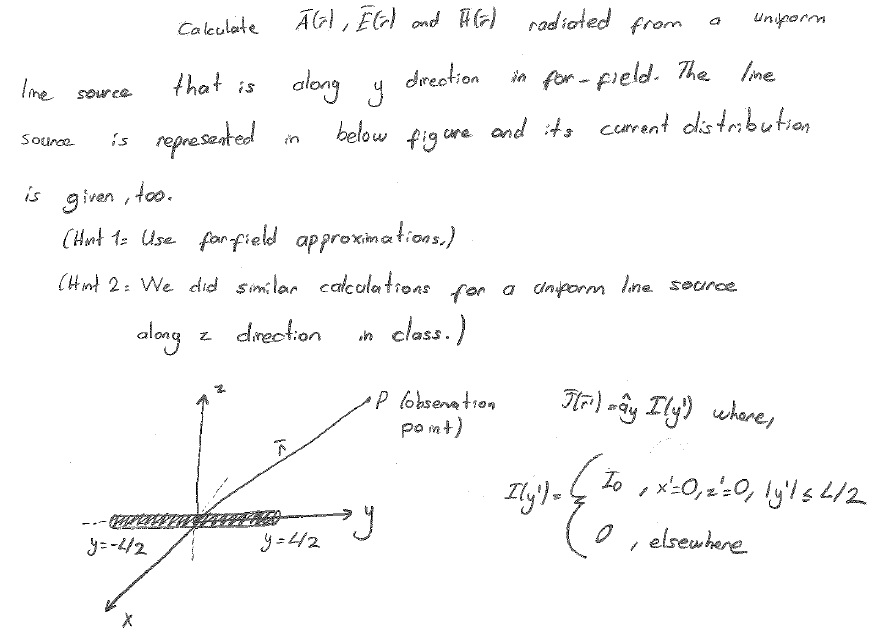 Calculate Ā(r̄), Ē(r̄) and H̄(r̄) radiated from a uniform
line source that is along y direction in far-field. The line
source is represented in below figure and its current distribution
is given, too.
(Hint 1: Use far-field approximations.)
(Hint 2: We did similar calculations for a uniform line source
along z direction in class.)
z
P (observation
point)
r̄
y
y=-L/2
y=L/2
x
J̄(r̄') = â_y I(y') where,
I(y') = { I₀ , x'=0, z'=0, |y'| ≤ L/2
0 , elsewhere